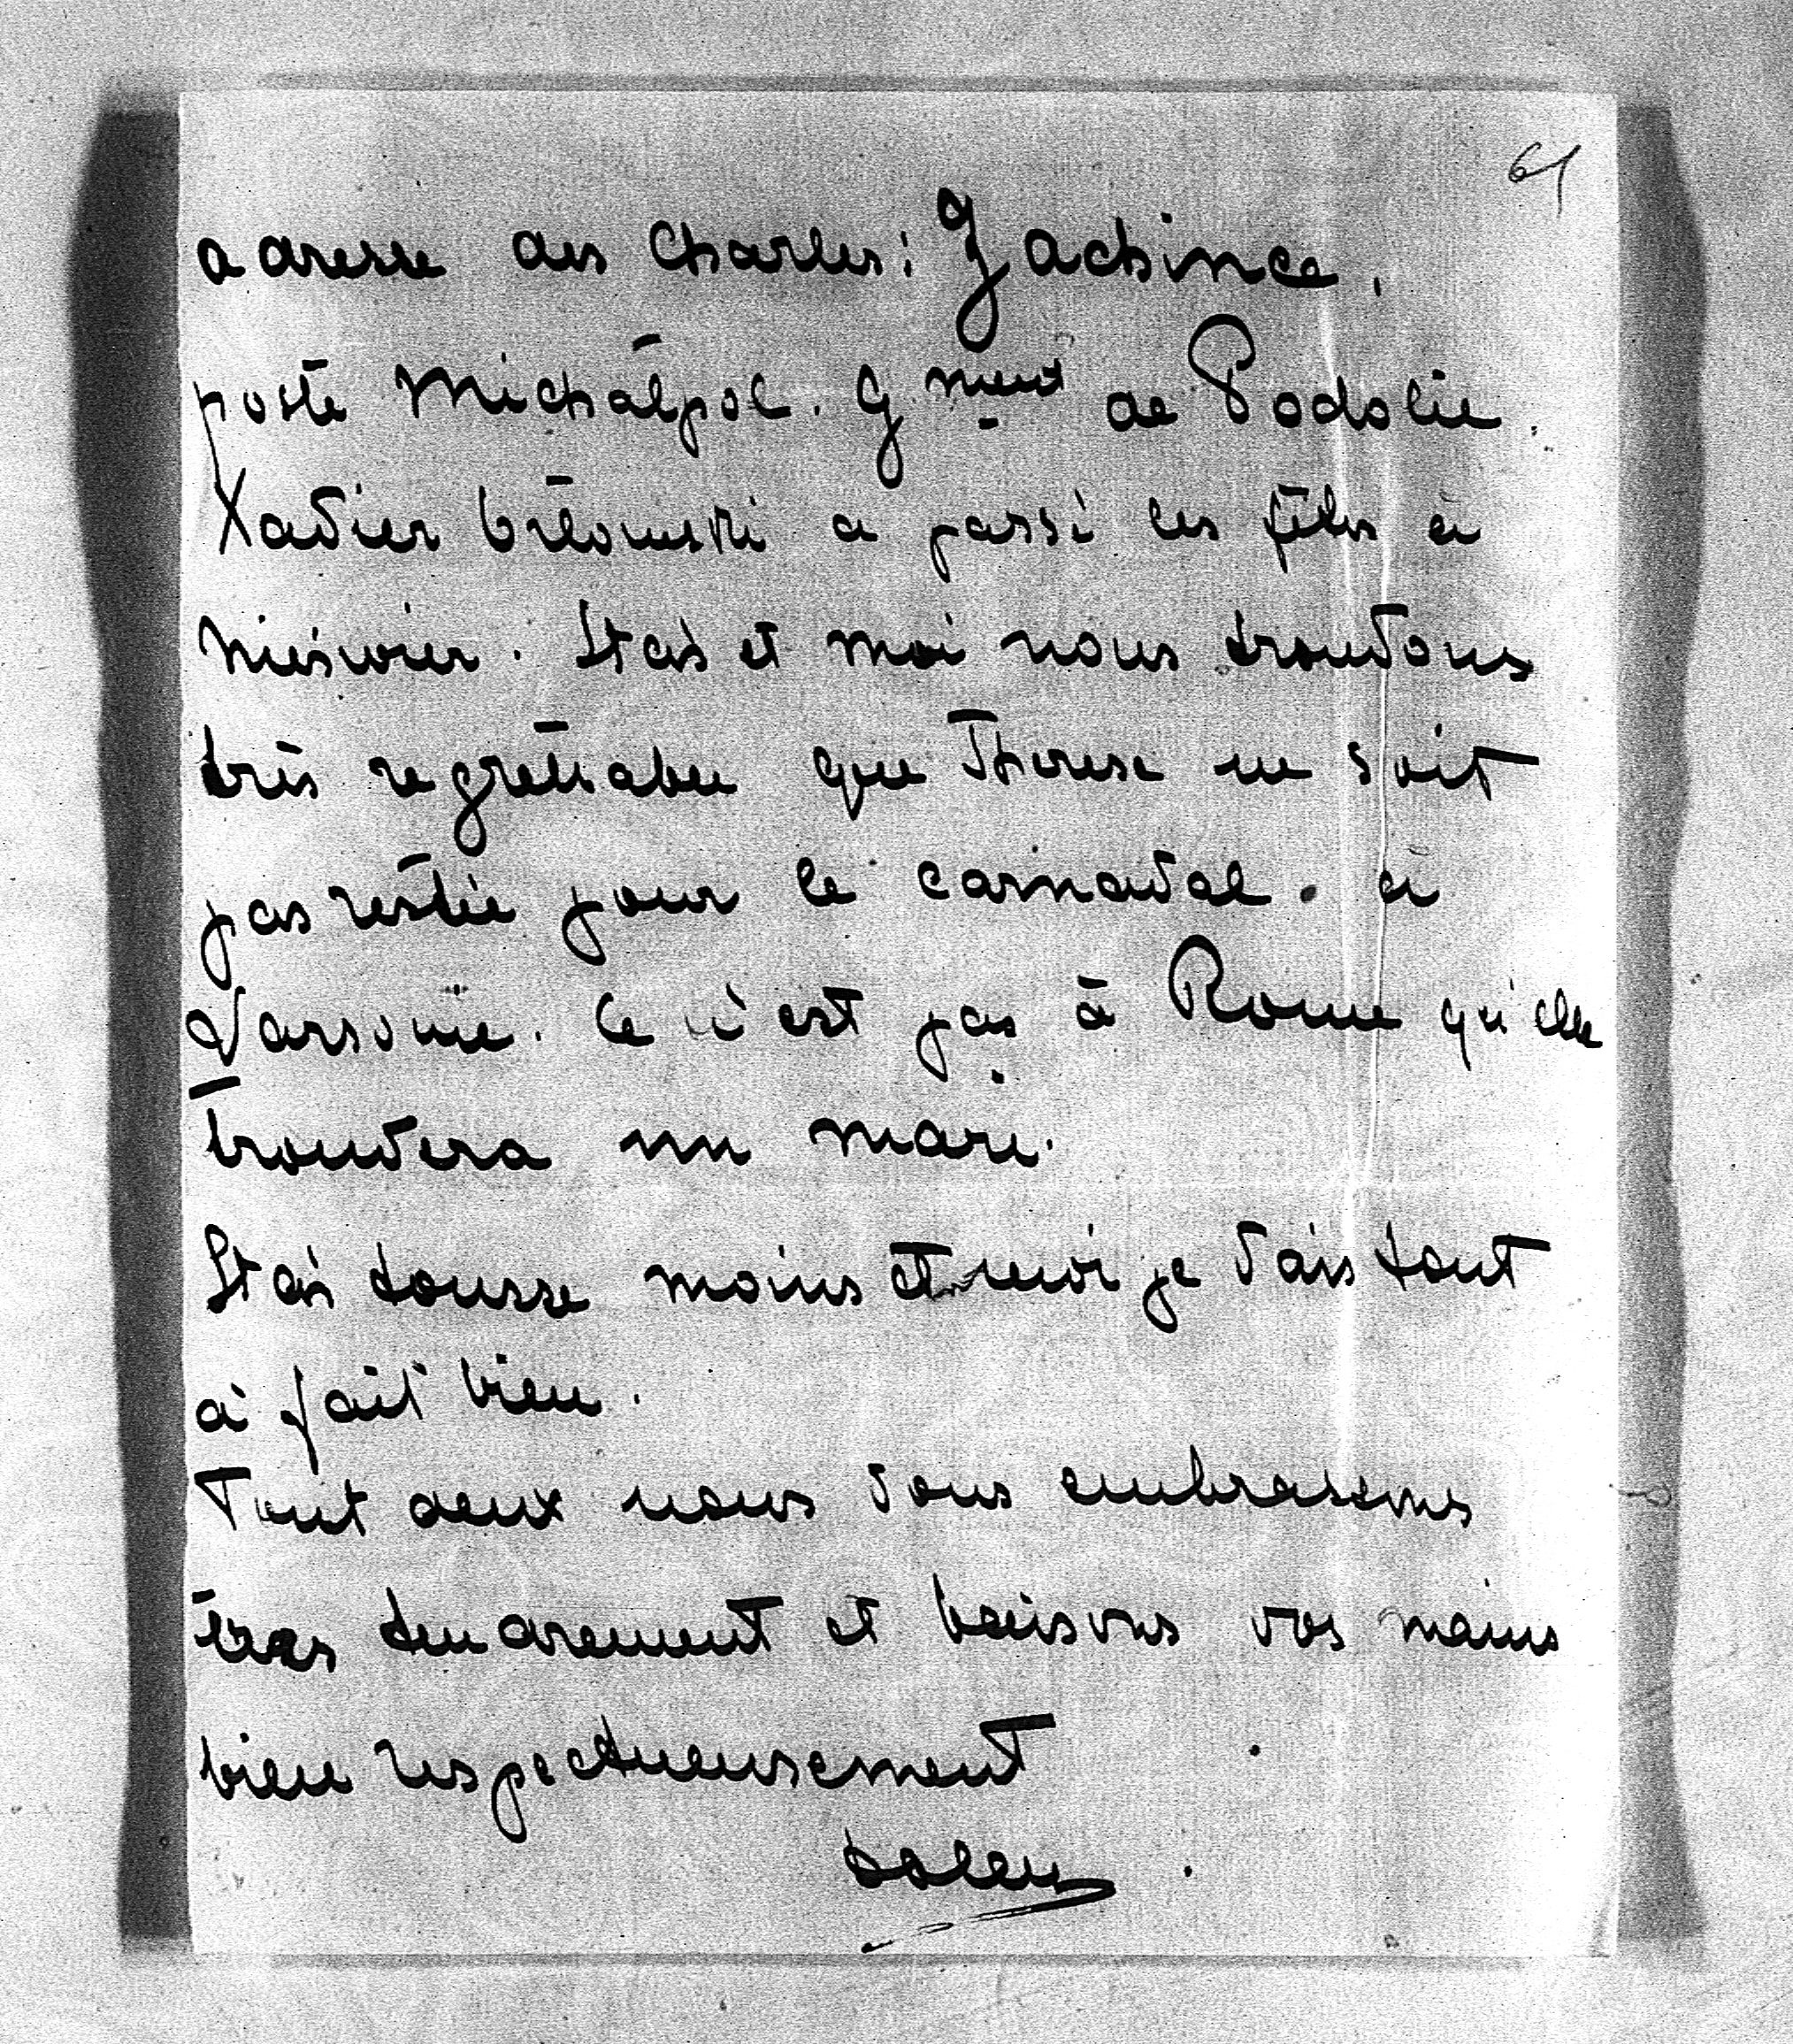 61
adresse des Charles: Jachince,
poste Michalpol. G.ment de Podolie.
Xavier Orlowski a passé les fêtes à
Nieswiez. Stas et moi nous trouvons
très regrettable que Therese ne soit
pas restée pour le carnaval. à
Varsovie. Ce n'est pas à Rome qu'elle
trouvera un mari.
Stas tousse moins et moi je vais tout
à fait bien.
Tout deux nous vous embrassons
tres tendrement et baisons vos mains
bien respectueusement